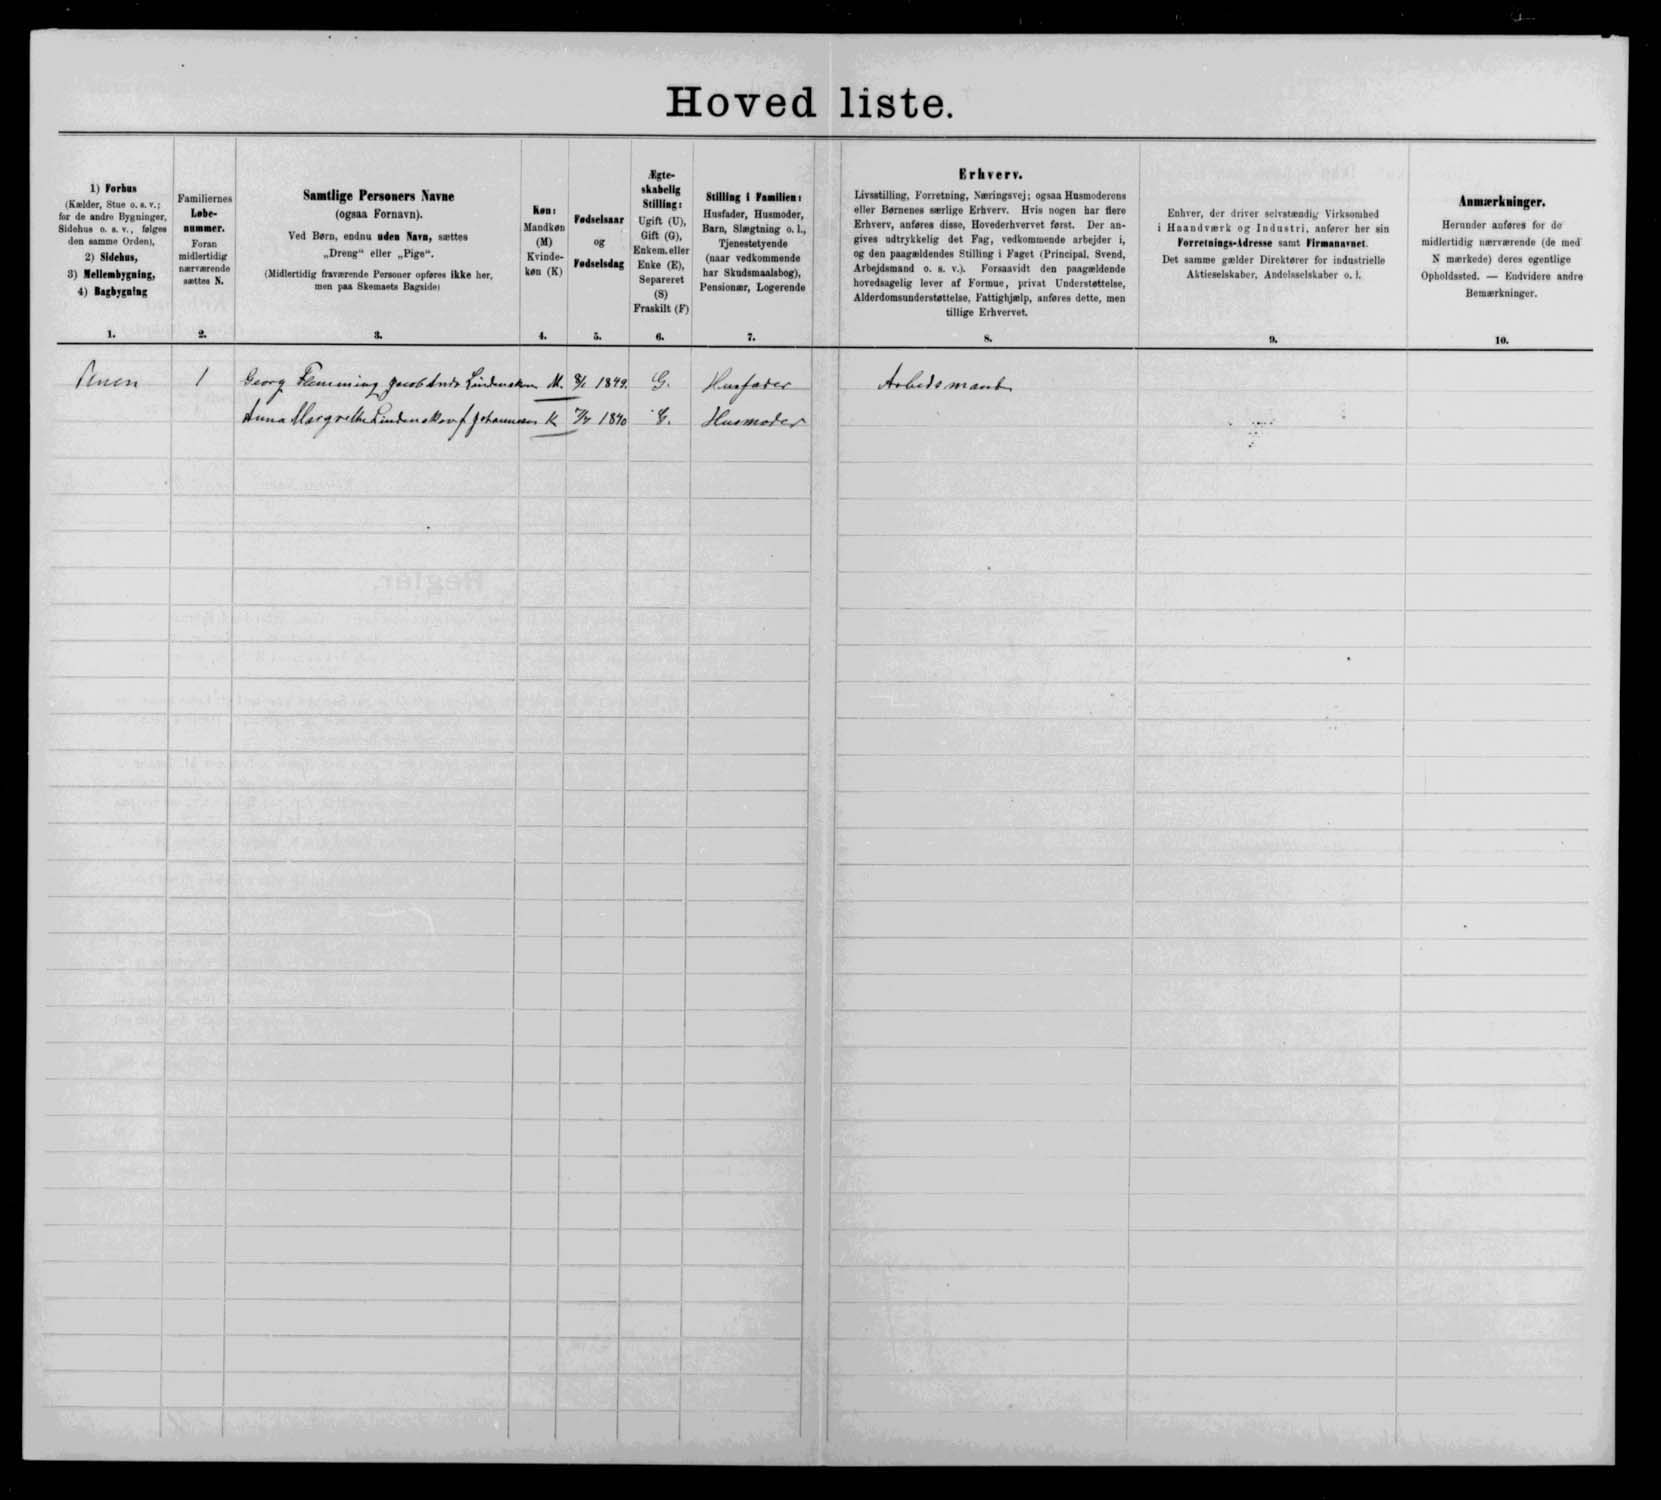 Hovedliste.
1) Forhus
(Kælder, Stue o. s. v.;
for de andre Bygninger,
Sidehus o. s. v., følges
den samme Orden),
2) Sidehus,
3) Mellembygning,
4) Bagbygning
1.
Familiernes
Løbe-
nummer.
Foran
midlertidig
nærværende
sættes N.
2.
Samtlige Personers Navne
(ogsaa Fornavn).
Ved Børn, endnu uden Navn, sættes
„Dreng“ eller „Pige“.
(Midlertidig fraværende Personer opføres ikke her,
men paa Skemaets Bagside)
3.
Køn:
Mandkøn
(M)
Kvinde-
køn (K)
4.
Fødselsaar
og
Fødselsdag
5.
Ægte-
skabelig
Stilling:
Ugift (U),
Gift (G),
Enkem. eller
Enke (E),
Separeret
(S)
Fraskilt (F)
6.
Stilling i Familien:
Husfader, Husmoder,
Barn, Slægtning o. l.,
Tjenestetyende
(naar vedkommende
har Skudsmaalsbog),
Pensionær, Logerende
7.
Erhverv.
Livsstilling, Forretning, Næringsvej; ogsaa Husmoderens
eller Børnenes særlige Erhverv. Hvis nogen har flere
Erhverv, anføres disse, Hovederhvervet først. Der an-
gives udtrykkelig det Fag, vedkommende arbejder i,
og den paagældendes Stilling i Faget (Principal, Svend,
Arbejdsmand o. s. v.). Forsaavidt den paagældende
hovedsagelig lever af Formue, privat Understøttelse,
Alderdomsunderstøttelse, Fattighjælp, anføres dette, men
tillige Erhvervet.
8.
Enhver, der driver selvstændig Virksomhed
i Haandværk og Industri, anfører her sin
Forretnings-Adresse samt Firmanavnet.
Det samme gælder Direktører for industrielle
Aktieselskaber, Andelsselskaber o. l.
9.
Anmærkninger.
Herunder anføres for de
midlertidig nærværende (de med
N mærkede) deres egentlige
Opholdssted. — Endvidere andre
Bemærkninger.
10.
1 Georg Flemming Jacob Lindenskov M. 1849. G. Husfader Arbedsmand
Anna Margrethe Lindenskov f. Johannesen K 1840 Husmoder